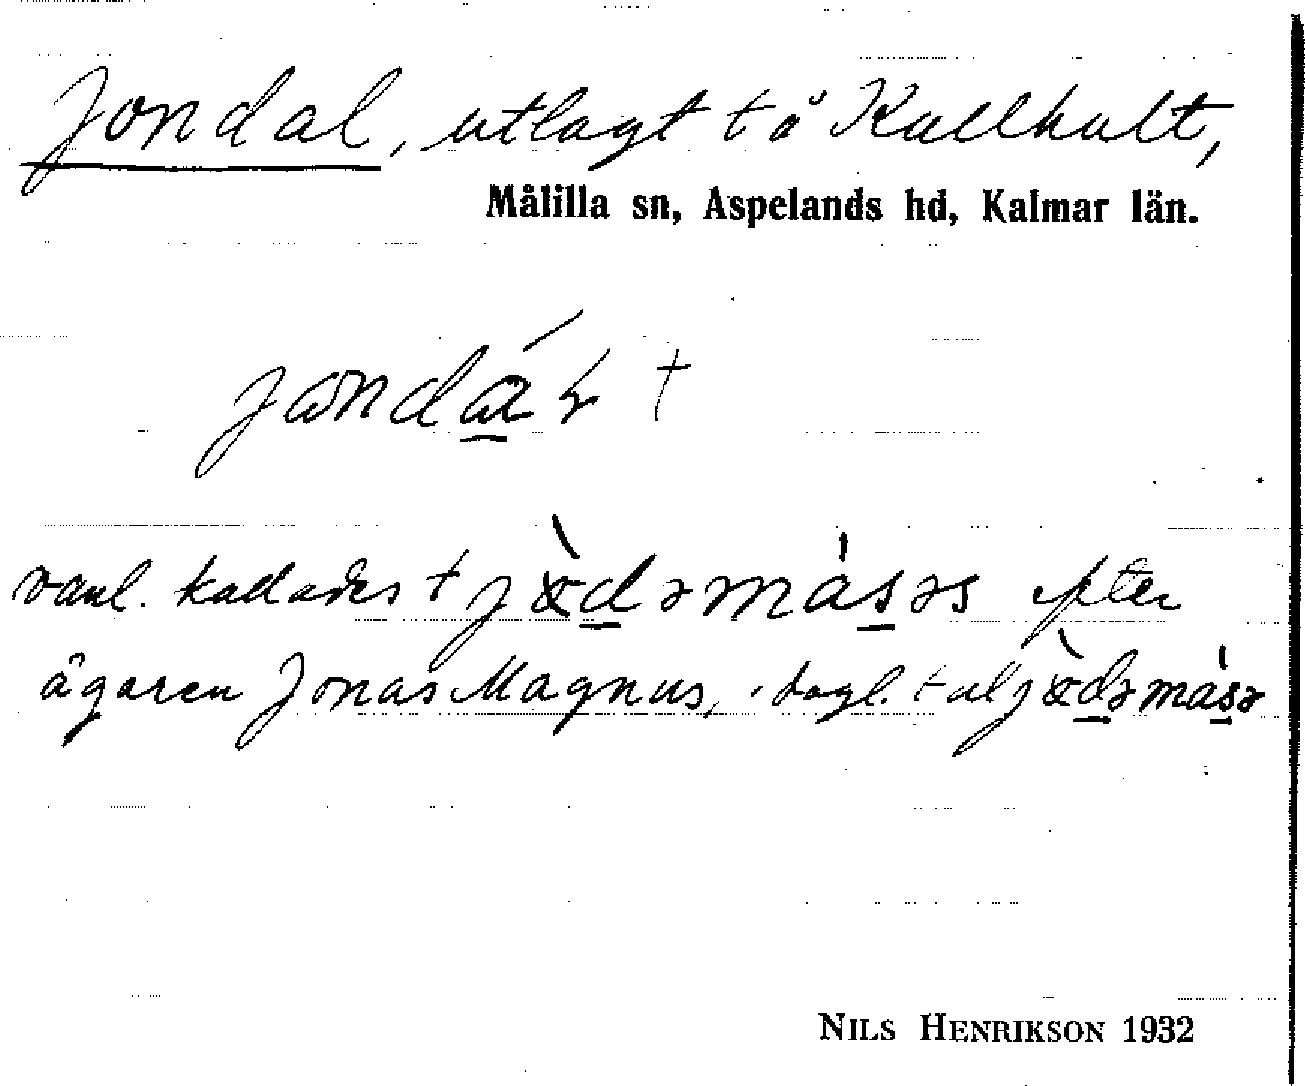 Jondal, utlagt tö Kullhult,
Målilla sn, Aspelands hd, Kalmar län.
jondál †
vanl. kallades † jödəmásəs efter
ägaren Jonas Magnus, dagl. tal jödəmásə
NILS HENRIKSON 1932